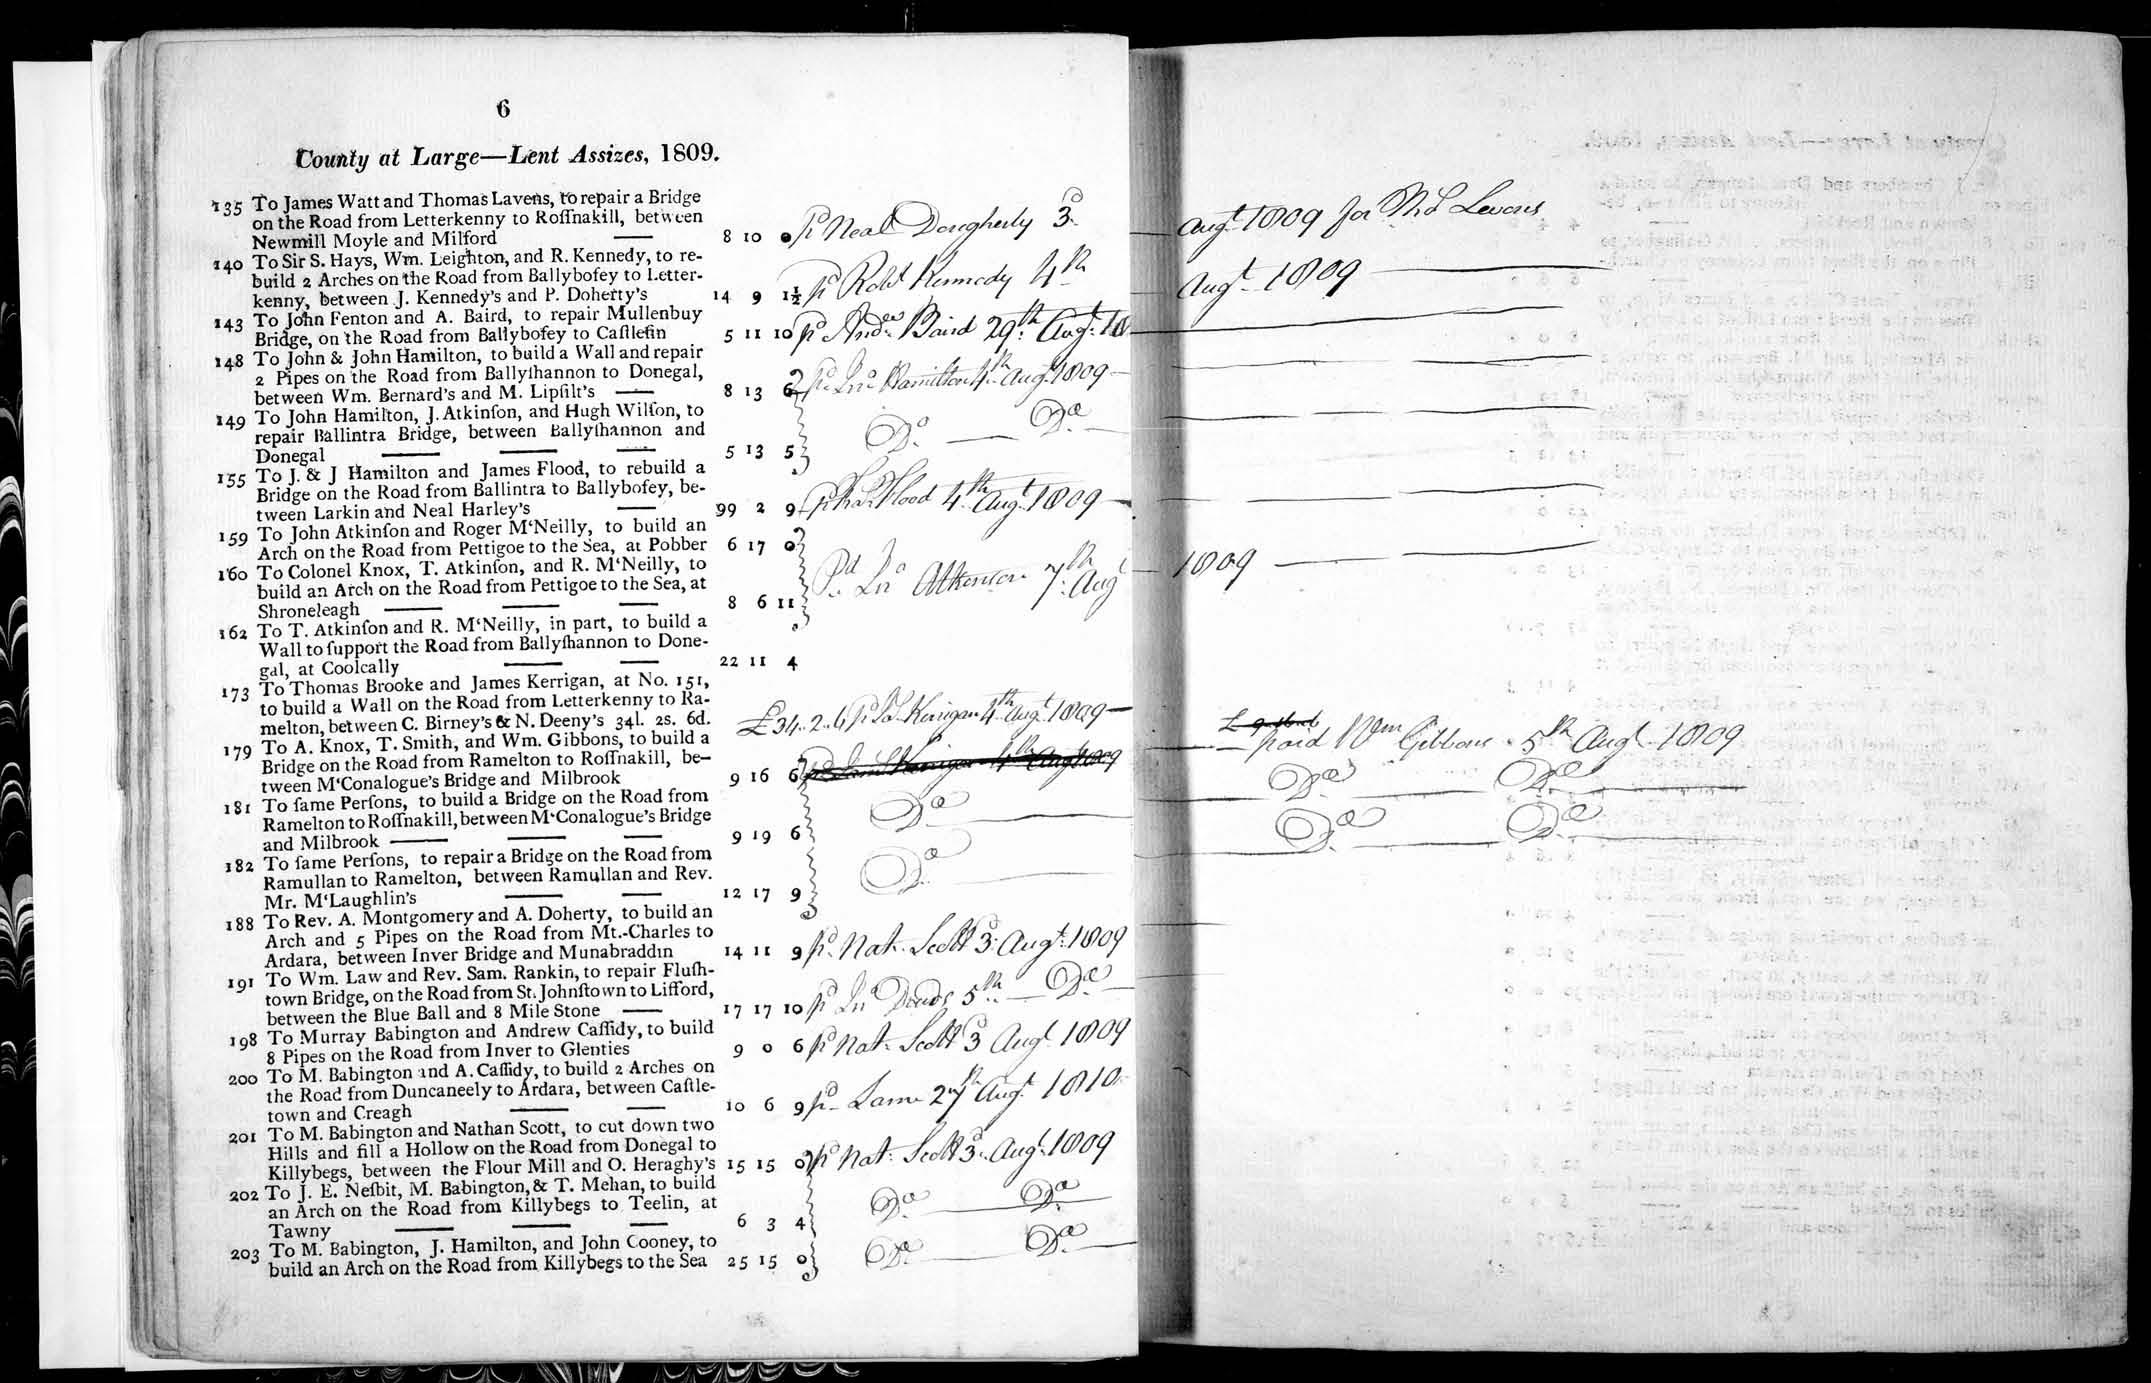 6
County at Large—Lent Assizes, 1809.
135 To James Watt and Thomas Lavens, to repair a Bridge
on the Road from Letterkenny to Roſſnakill, between
Newmill Moyle and Milford — 8 10 0 pd Neal Dougherty 3d Augt 1809 for Ths Levens
140 To Sir S. Hays, Wm. Leighton, and R. Kennedy, to re-
build 2 Arches on the Road from Ballybofey to Letter-
kenny, between J. Kennedy's and P. Doherty's 14 9 1½ pd Robt Kennedy 4th Augt 1809
143 To John Fenton and A. Baird, to repair Mullenbuy
Bridge, on the Road from Ballybofey to Caſtlefin 5 11 10 pd Andw Baird 29th Augt 18
148 To John & John Hamilton, to build a Wall and repair
2 Pipes on the Road from Ballyſhannon to Donegal,
between Wm. Bernard's and M. Lipſilt's — 8 13 6 pd Jno Hamilton 4th Augt 1809
149 To John Hamilton, J. Atkinſon, and Hugh Wilſon, to
repair Ballintra Bridge, between Ballyſhannon and
Donegal — — — 5 13 5 Do — Do
155 To J. & J Hamilton and James Flood, to rebuild a
Bridge on the Road from Ballintra to Ballybofey, be-
tween Larkin and Neal Harley's — 99 2 9 Flood 4th Augt 1809
159 To John Atkinſon and Roger M'Neilly, to build an
Arch on the Road from Pettigoe to the Sea, at Pobber 6 17 0
160 To Colonel Knox, T. Atkinſon, and R. M'Neilly, to
build an Arch on the Road from Pettigoe to the Sea, at
Shroneleagh — — — 8 6 11 Pd Jno Atkinson 7th Augt 1809
162 To T. Atkinſon and R. M'Neilly, in part, to build a
Wall to ſupport the Road from Ballyſhannon to Done-
gal, at Coolcally — — 22 11 4
173 To Thomas Brooke and James Kerrigan, at No. 151,
to build a Wall on the Road from Letterkenny to Ra-
melton, between C. Birney's & N. Deeny's 34l. 2s. 6d. £34..2..6 pd Js Kerrigan 4th Augt 1809
179 To A. Knox, T. Smith, and Wm. Gibbons, to build a
Bridge on the Road from Ramelton to Roſſnakill, be-
tween M'Conalogue's Bridge and Milbrook 9 16 6 pd Jams Kerrigan 4th Augt 1809 paid Wm Gibbons 5th Augt 1809
181 To ſame Perſons, to build a Bridge on the Road from
Ramelton to Roſſnakill, between M'Conalogue's Bridge
and Milbrook — — — 9 19 6 Do Do Do
182 To ſame Perſons, to repair a Bridge on the Road from
Ramullan to Ramelton, between Ramullan and Rev.
Mr. M'Laughlin's — — 12 17 9 Do Do Do
188 To Rev. A. Montgomery and A. Doherty, to build an
Arch and 5 Pipes on the Road from Mt.-Charles to
Ardara, between Inver Bridge and Munabraddin 14 11 9 pd Nat. Scott 3d Augt 1809
191 To Wm. Law and Rev. Sam. Rankin, to repair Fluſh-
town Bridge, on the Road from St. Johnſtown to Lifford,
between the Blue Ball and 8 Mile Stone — 17 17 10 pd Jno 5th — Do
198 To Murray Babington and Andrew Caſſidy, to build
8 Pipes on the Road from Inver to Glenties 9 0 6 pd Nat. Scott 3d Augt 1809
200 To M. Babington and A. Caſſidy, to build 2 Arches on
the Road from Duncaneely to Ardara, between Caſtle-
town and Creagh — — 10 6 9 pd Same 27th Augt 1810
201 To M. Babington and Nathan Scott, to cut down two
Hills and fill a Hollow on the Road from Donegal to
Killybegs, between the Flour Mill and O. Heraghy's 15 15 0 pd Nat. Scott 3d Augt 1809
202 To J. E. Neſbit, M. Babington, & T. Mehan, to build
an Arch on the Road from Killybegs to Teelin, at
Tawny — — — 6 3 4 Do Do
203 To M. Babington, J. Hamilton, and John Cooney, to
build an Arch on the Road from Killybegs to the Sea 25 15 0 Do Do